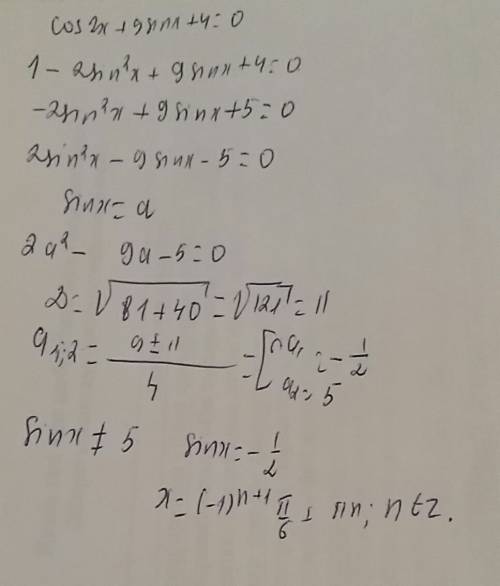 cos2x+9sinx+4=0
1-2sin²x+9sinx+4=0
-2sin²x+9sinx+5=0
2sin²x-9sinx-5=0
sinx=a
2a²- 9a-5=0
D=√81+40=√121=11
a₁;₂=(9±11)/4=[a₁=-1/2
a₂=5
sinx≠5 sinx=-1/2
x=(-1)ⁿ⁺¹ π/6+πn; n∈Z.